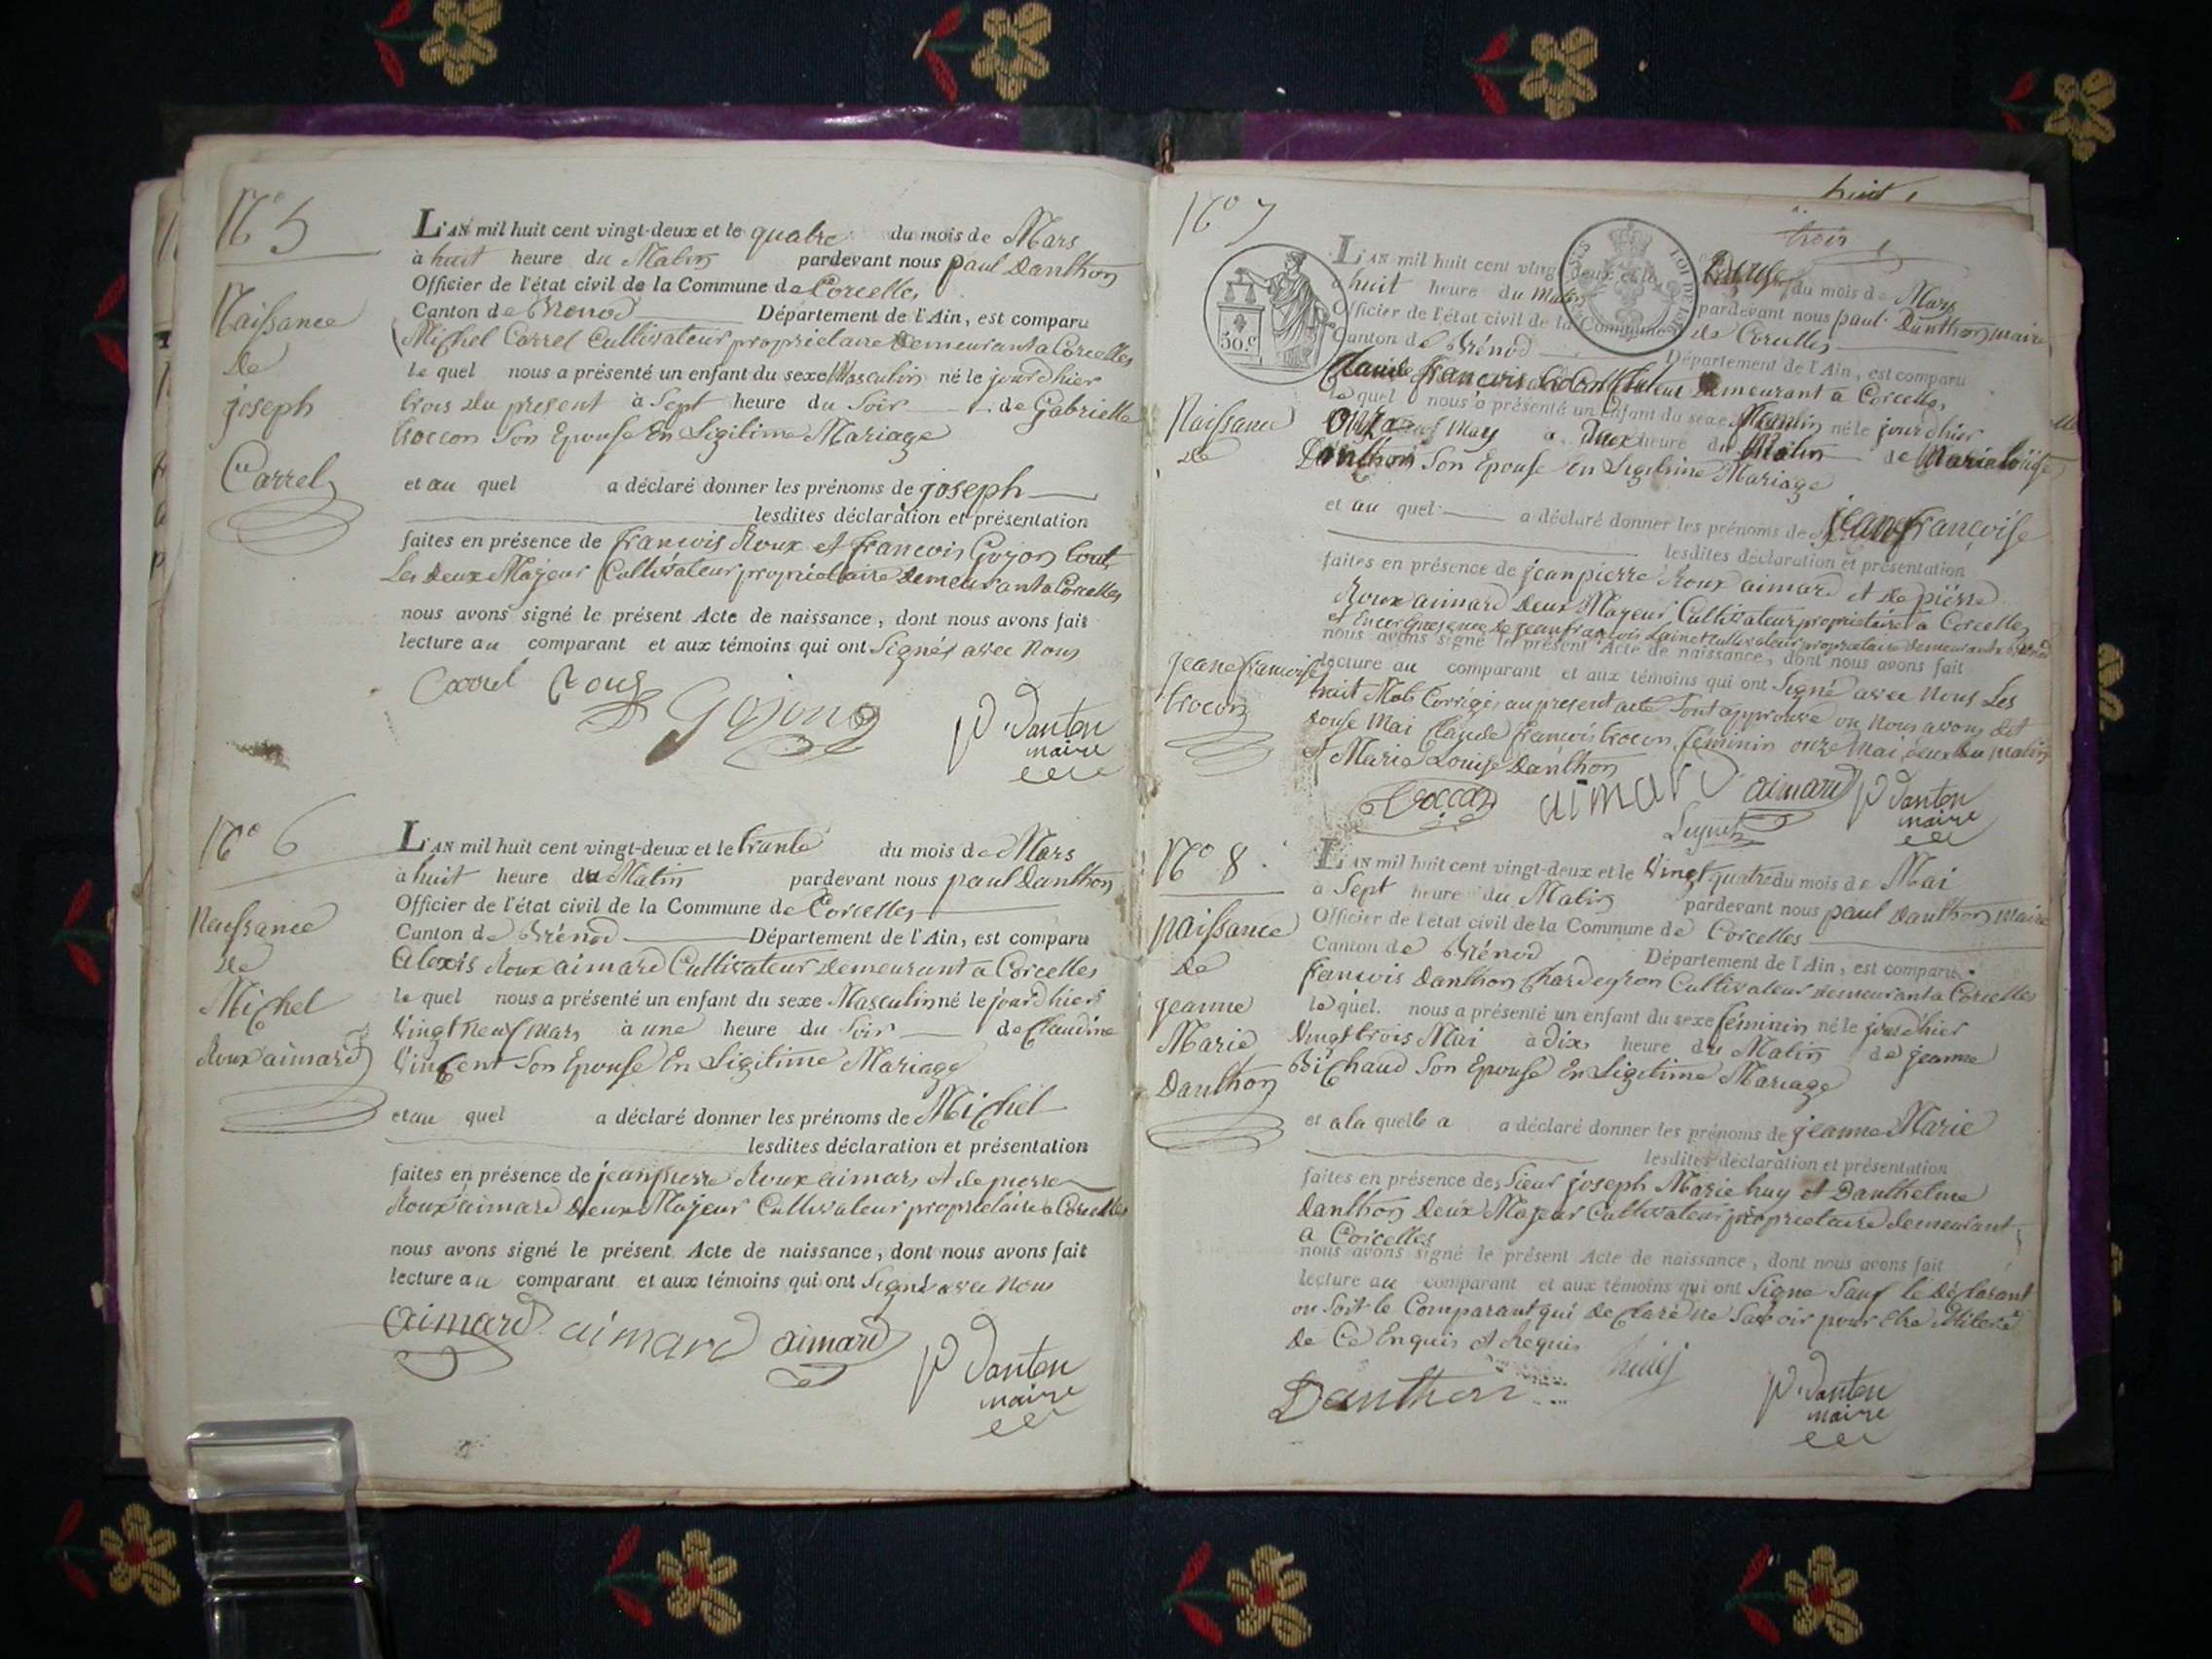 N.º 5
Naissance
de
joseph
Carrel
L'AN mil huit cent vingt-deux et le quatre du mois de Mars
à huit heure du Matin pardevant nous paul Danthon
Officier de l'état civil de la Commune de Corcelles
Canton de Brenod Département de l'Ain, est comparu
Michel Carrel Cultivateur proprietaire Demeurant a Corcelles
le quel nous a présenté un enfant du sexe Masculin né le jour d'hier
trois du present à Sept heure du Soir de Gabrielle
troccon Son Epouse En Legitime Mariage
et au quel a déclaré donner les prénoms de joseph
lesdites déclaration et présentation
faites en présence de francois Roux et francois Gojon tout
Les deux Majeur Cultivateur proprietaire Demeurant a Corcelles
nous avons signé le présent Acte de naissance, dont nous avons fait
lecture au comparant et aux témoins qui ont Signés avec Nous
Carrel Roux Gojon P. Danton
maire
N.º 6
Naissance
de
Michel
Roux aimard
L'AN mil huit cent vingt-deux et le trante du mois de Mars
à huit heure du Matin pardevant nous paul Danthon
Officier de l'état civil de la Commune de Corcelles
Canton de Brénod Département de l'Ain, est comparu
Alexis Roux aimard Cultivateur Demeurant a Corcelles
le quel nous a présenté un enfant du sexe Masculin né le jour d'hier
Vingt neuf Mars à une heure du Soir de Claudine
Vincent Son Epouse En Legitime Mariage
et au quel a déclaré donner les prénoms de Michel
lesdites déclaration et présentation
faites en présence de jean pierre Roux aimard et de pierre
Roux aimard Deux Majeur Cultivateur proprietaire a Corcelles
nous avons signé le présent Acte de naissance, dont nous avons fait
lecture au comparant et aux témoins qui ont Signé avec Nous
aimard aimard aimard P Danton
maire
huit
trois
N.º 7
Naissance
de
jeane francoise
trocon
50 C
L'AN mil huit cent vingt-deux et le Douse du mois de
à huit heure du Matin pardevant nous paul Danthon maire
Officier de l'état civil de la Commune de Corcelles
Canton de Brénod Département de l'Ain, est comparu
Claude francois Cultivateur Demeurant a Corcelles
le quel nous a présenté un enfant du sexe né le jour d'hier
Onze à Deux heure du Matin de Marie louise
Danthon Son Epouse En Legitime Mariage
et au quel a déclaré donner les prénoms de jeane françoise
lesdites déclaration et présentation
faites en présence de jean pierre Roux aimard et de pierre
Roux aimard Deux Majeur Cultivateur proprietaire a Corcelles
et Encore presence de jean francois Cultivateur proprietaire demeurant a Brenod
nous avons signé le présent Acte de naissance, dont nous avons fait
lecture au comparant et aux témoins qui ont Signé avec Nous Les
huit Mots Corrigés au present acte Sont approuvé ou Nous avons dit
douse Mai Claude francois trocon féminin onze Mai deux du Matin
et Marie Louise Danthon
aimard aimard P Danton
maire
N.º 8
Naissance
de
jeanne
Marie
Danthon
L'AN mil huit cent vingt-deux et le Vingt quatre du mois de Mai
à Sept heure du Matin pardevant nous paul Danthon Maire
Officier de l'état civil de la Commune de Corcelles
Canton de Brénod Département de l'Ain, est comparu
francois Danthon Chardeyron Cultivateur Demeurant a Corcelles
le quel nous a présenté un enfant du sexe féminin né le jour d'hier
Vingt trois Mai à dix heure du Matin de jeanne
Bichaud Son Epouse En Legitime Mariage
et a la quelle a a déclaré donner les prénoms de jeanne Marie
lesdites déclaration et présentation
faites en présence des Sieur joseph Marie huy et Danthelme
Danthon Deux Majeur Cultivateur proprietaire demeurant
a Corcelles
nous avons signé le présent Acte de naissance, dont nous avons fait
lecture au comparant et aux témoins qui ont Signe Sauf le Déclarant
ou Soit le Comparant qui declaré ne Savoir pour Etre
de Ce Enquis et Requis
Danthon P. Danton
maire